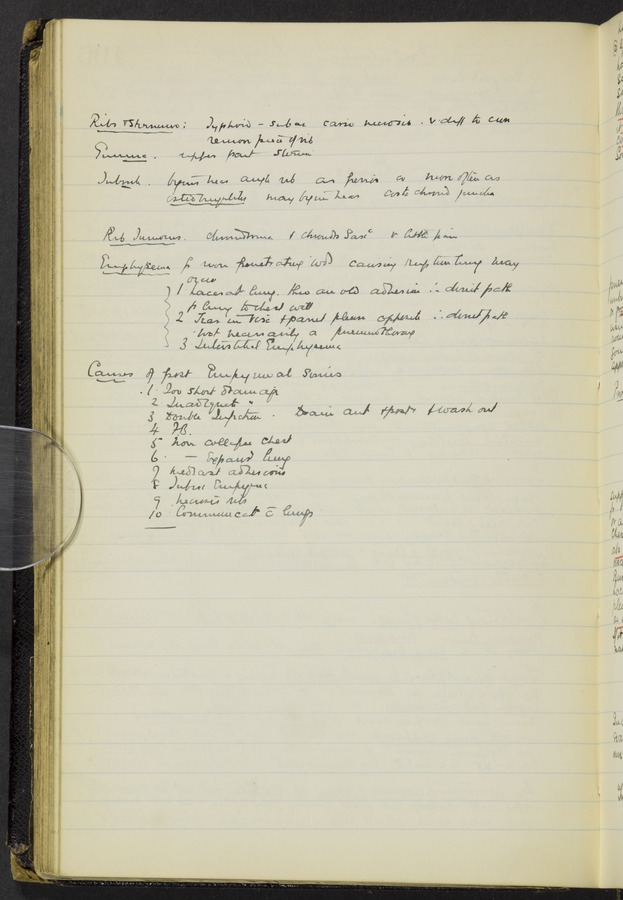 Ribs & Sternum: Typhoid - subac caries necrosis. v diff to cure
remove piece of rib
Gumma. upper part Stern
Tubercle. begins near angle rib ant more often as
may begin near costo chond junctn
Rib Tumours. chondroma & chondro Sarc v little pain
Emphysema fr non penetrating wd causing rupture lung may
occur
1 Lacerat lung. thro an old adhesion ∴ direct path
fr lung to chest wall
2 Tear in visc & pariet pleura opposite ∴ direct path
not necessarily a pneumothorax
3 Interstitial Emphysema
Causes of post Empyemal Sinus
1 Too short drainage
2 Inadequate "
3 Double Infection. Drain ant & post & wash out
4 FB.
5 Non collapse Chest
6 — Expans lung
7 Mediast adhesions
8 Empyema
9 Necrosis rib
10 Communicat c̄ lungs